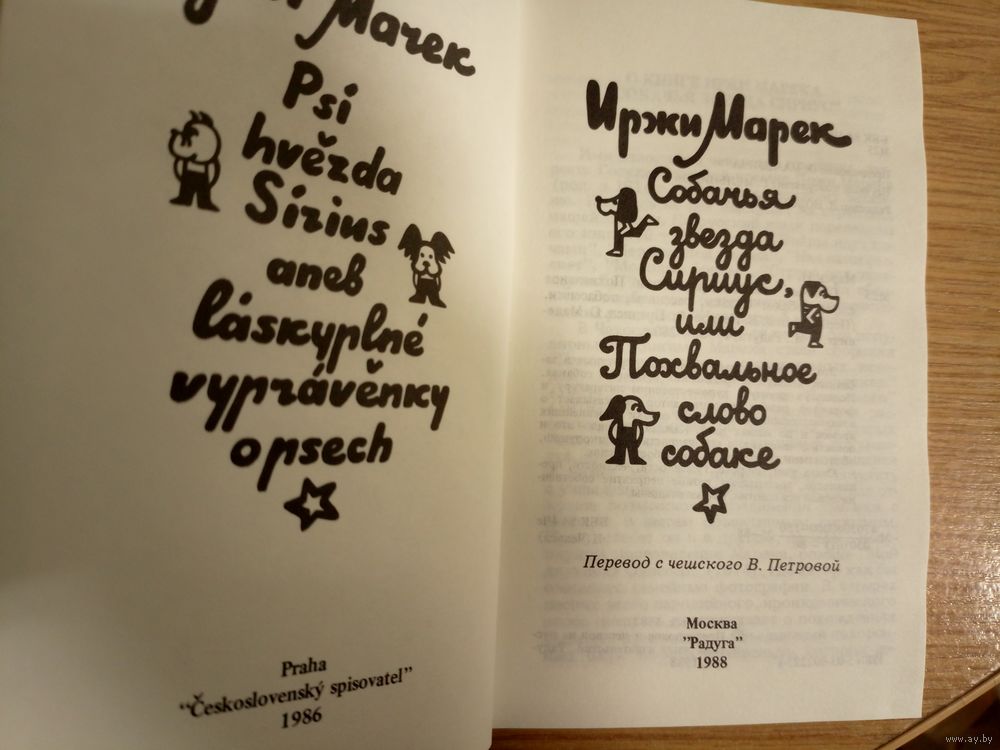 Марек
Psí
hvězda
Sírius
aneb
láskyplné
vyprávěnky
o psech
Praha
"Československý spisovatel"
1986
Иржи Марек
Собачья
звезда
Сириус,
или
Похвальное
слово
собаке
Перевод с чешского В. Петровой
Москва
"Радуга"
1988
www.ay.by